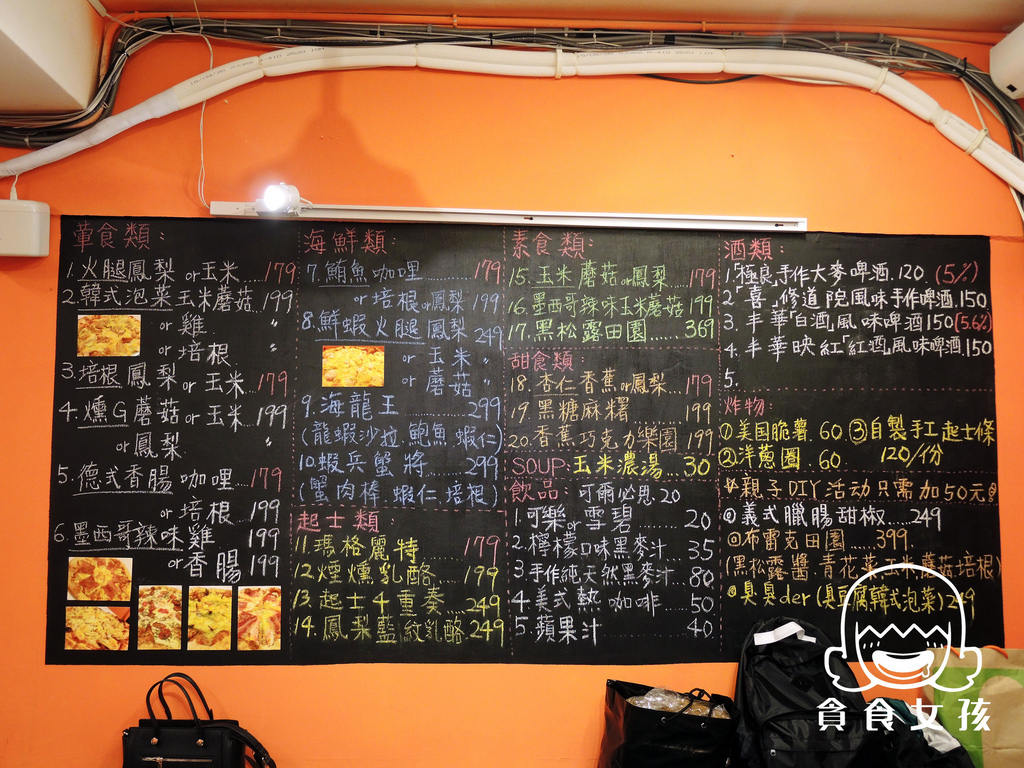 葷食類:
1.火腿鳳梨 or玉米....179
2.韓式泡菜玉米蘑菇199
or 雞 〃
or 培根 〃
3.培根鳳梨 or玉米..179
4.燻G蘑菇or玉米..199
or鳳梨 〃
5.德式香腸咖哩...179
or培根..199
6.墨西哥辣味雞 199
or香腸199
海鮮類:
7.鮪魚咖哩......179
or培根or鳳梨199
8.鮮蝦火腿鳳梨249
or玉米〃
or蘑菇〃
9.海龍王........299
(龍蝦沙拉.鮑魚.蝦仁)
10.蝦兵蟹將....299
(蟹肉棒.蝦仁.培根)
起士類:
11.瑪格麗特.....179
12.煙燻乳酪....199
13.起士4重奏....249
14.鳳梨藍紋乳酪.249
素食類:
15.玉米蘑菇or鳳梨179
16.墨西哥辣味玉米蘑菇199
17.黑松露田園......369
甜食類:
18.杏仁香蕉or鳳梨..179
19.黑糖麻糬 199
20.香蕉巧克力樂園199
SOUP:玉米濃湯...30
飲品:可爾必思.20
1.可樂or雪碧......20
2.檸檬口味黑麥汁...35
3.手作純天然黑麥汁...80
4.美式熱咖啡....50
5.蘋果汁 40
酒類:
1.「極良」手作大麥啤酒.120 (5%)
2.「喜」.修道院風味手作啤酒.150
3.丰華「白酒」風味啤酒150(5.6%)
4.丰華映紅「紅酒」風味啤酒.150
5.
炸物:
①美国脆薯.60 ③自製手工起士條
②洋蔥圈.60 120/份
親子DIY活动只需加50元
義式臘腸甜椒.....249
布雷克田園.....399.
(黑松露醬.青花菜.玉米蘑菇培根)
臭臭der(臭豆腐韓式泡菜)249
貪食女孩